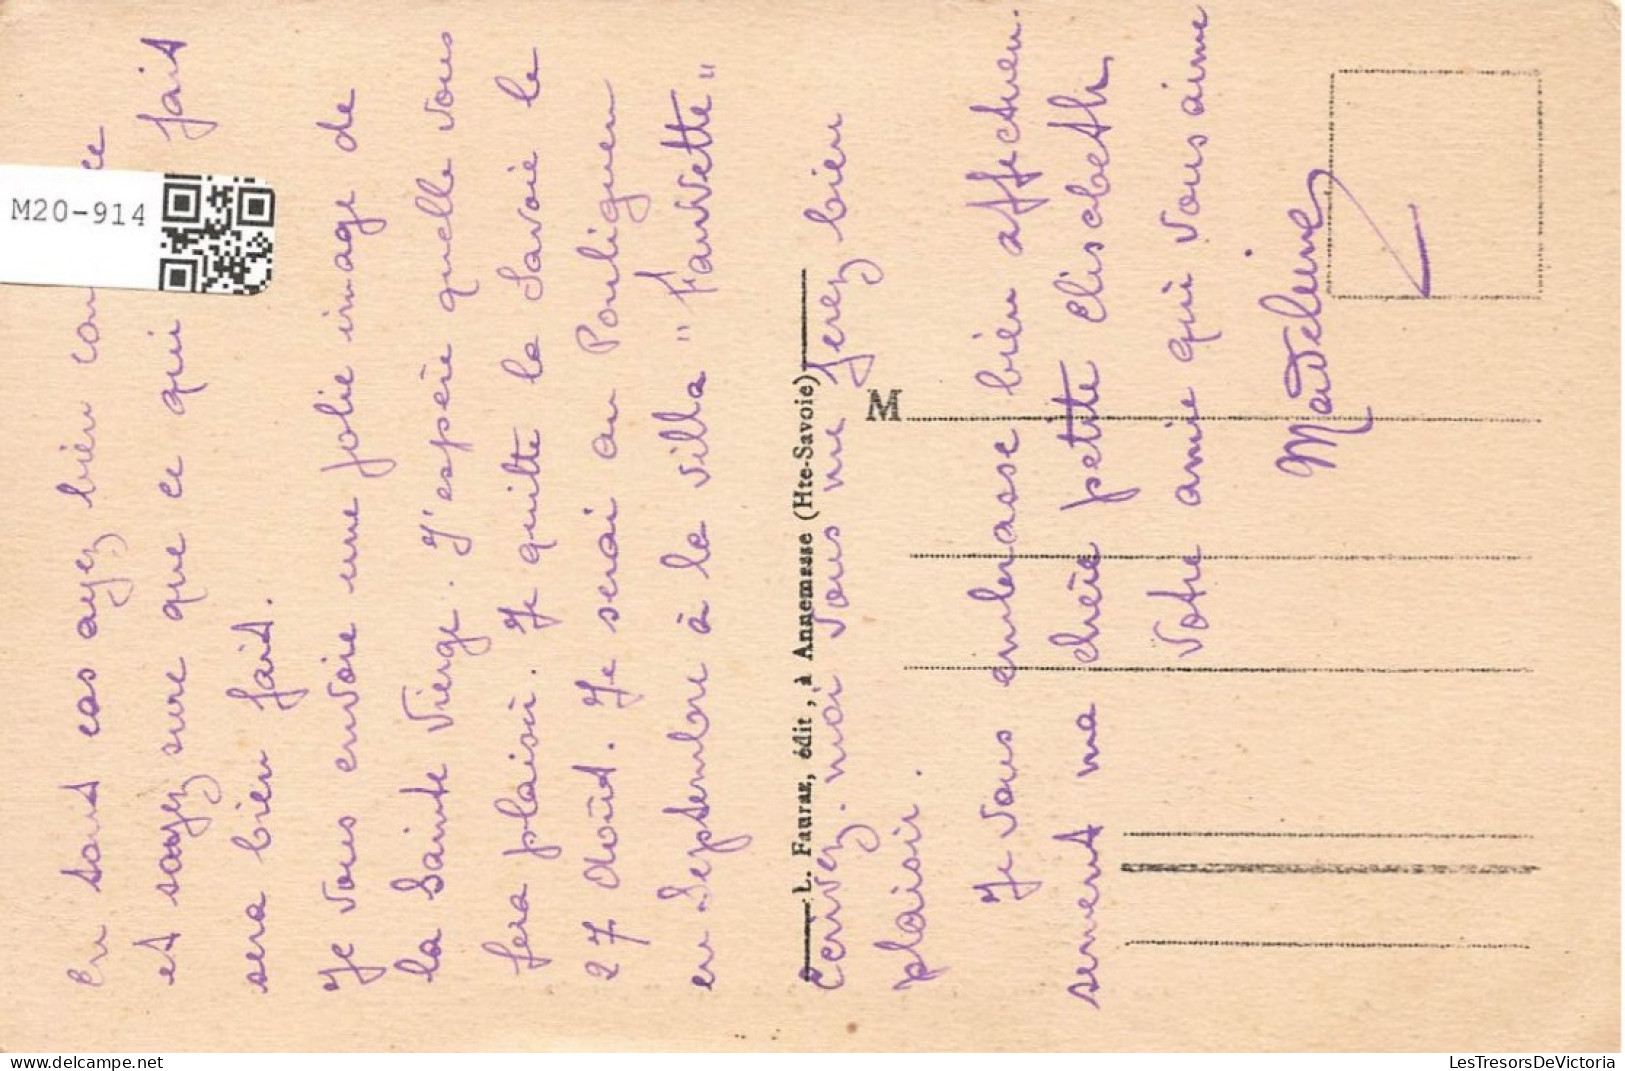 En tout cas ayez bien con ce
et soyez sure que ce qui fait
sera bien fait.
Je vous envoie une jolie image de
la Sainte Vierge. J'espère quelle vous
fera plaisir. Je quitte la Savoie le
27 Août. Je serai au Pouliguen
en Septembre à la villa "Fauvette"
Ecrivez-moi vous me ferez bien
plaisir.
Je vous embrasse bien affectueu.
sement ma chère petite Elisabeth
Votre amie qui vous aime
Madeleine
L. Fauraz, édit, à Annemesse (Hte-Savoie)
M
M20-914
delcampe.net
LesTresorsDeVictoria